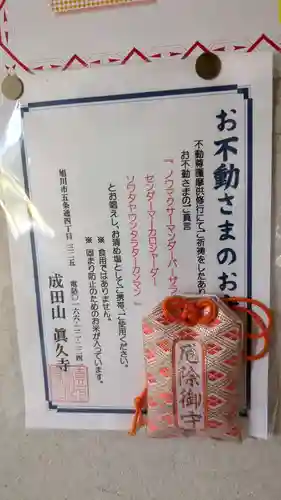 お不動さまのお
不動尊護摩供修行にてご祈祷をしたあり
お不動さまのご真言
『ノウマクサーマンダーバーサラ
センダーマーカロシャーダー
ソワタヤウンタラターカンマン』
とお唱えし、お清め塩としてご携帯、ご使用ください。
※ 食用ではありません。
※ 固まり防止のためのお米が入っています。
旭川市五条通四丁目
電話〇一六六
成田山 眞久寺
厄除御守